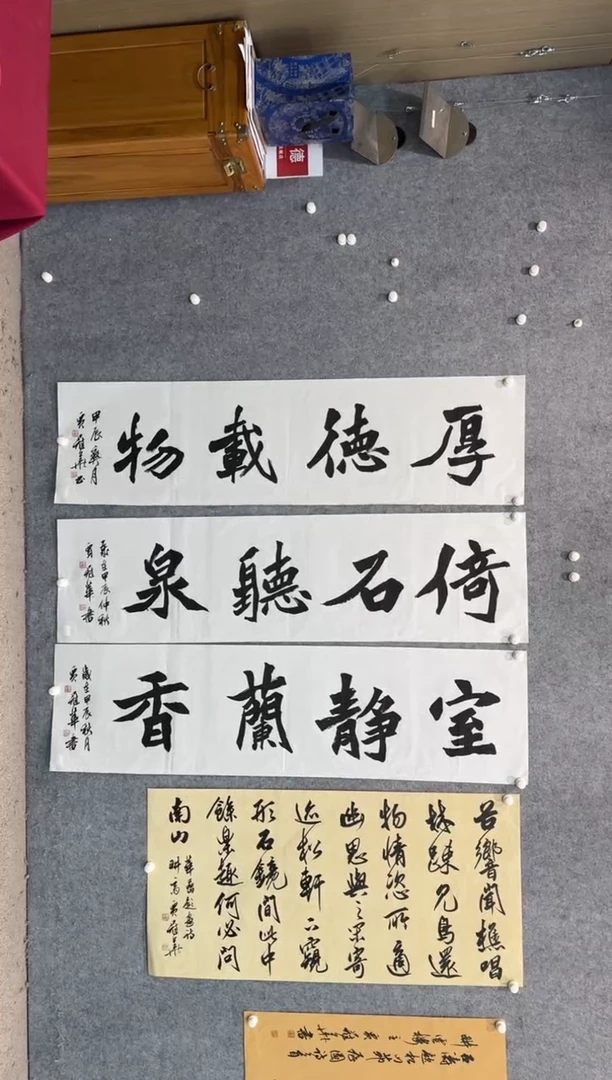 德
厚德載物
甲辰葵月
倚石聽泉
歲在甲辰仲秋
室靜蘭香
歲在甲辰秋月
谷響聞樵唱
林疎見鳥還
物情恣所適
幽思與之閑寄
迹松軒下窺
形石鏡間此中
餘景趣何必問
南山